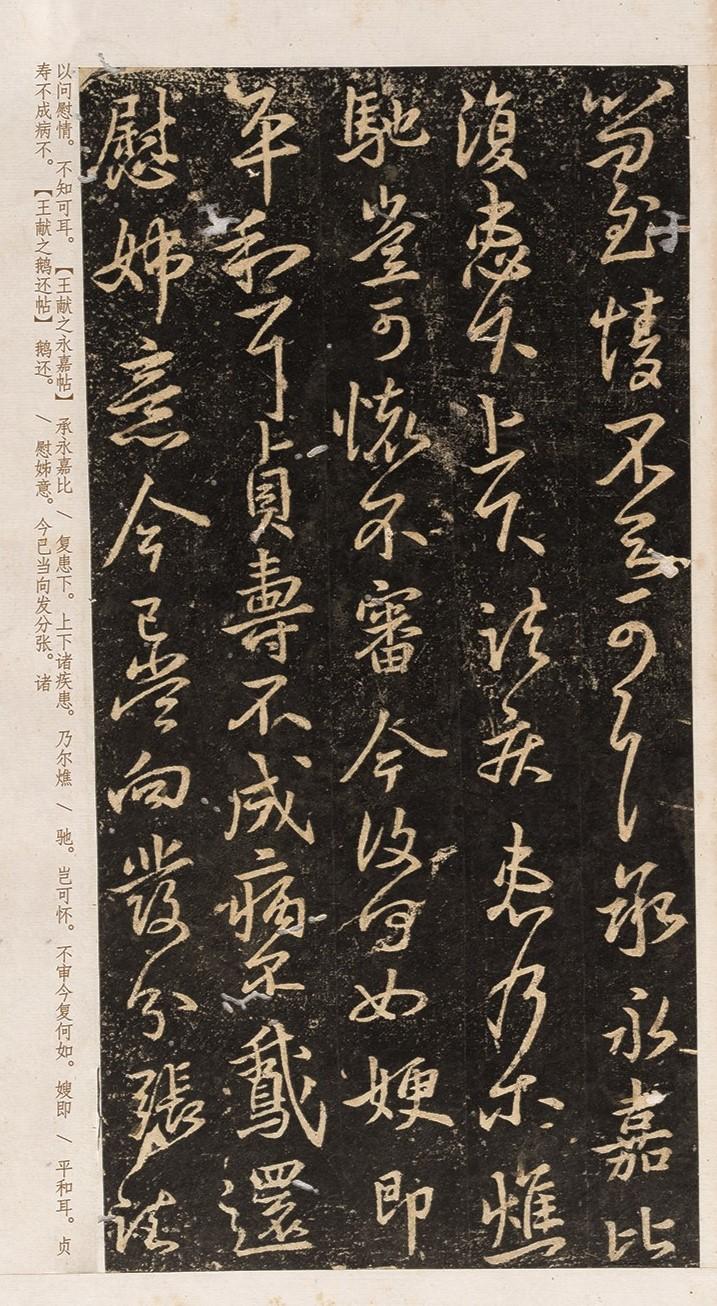 以問慰情不知可耳承永嘉比
復患下上下諸疾患乃尔燋
馳豈可懷不審今復何如嫂即
平和耳貞壽不成病不鵝還
慰姊意今已當向發分張諸
以问慰情。不知可耳。【王献之永嘉帖】 承永嘉比 / 复患下。上下诸疾患。乃尔燋 / 驰。岂可怀。不审今复何如。嫂即 / 平和耳。贞
寿不成病不。【王献之鹅还帖】 鹅还。 / 慰姊意。今已当向发分张。诸